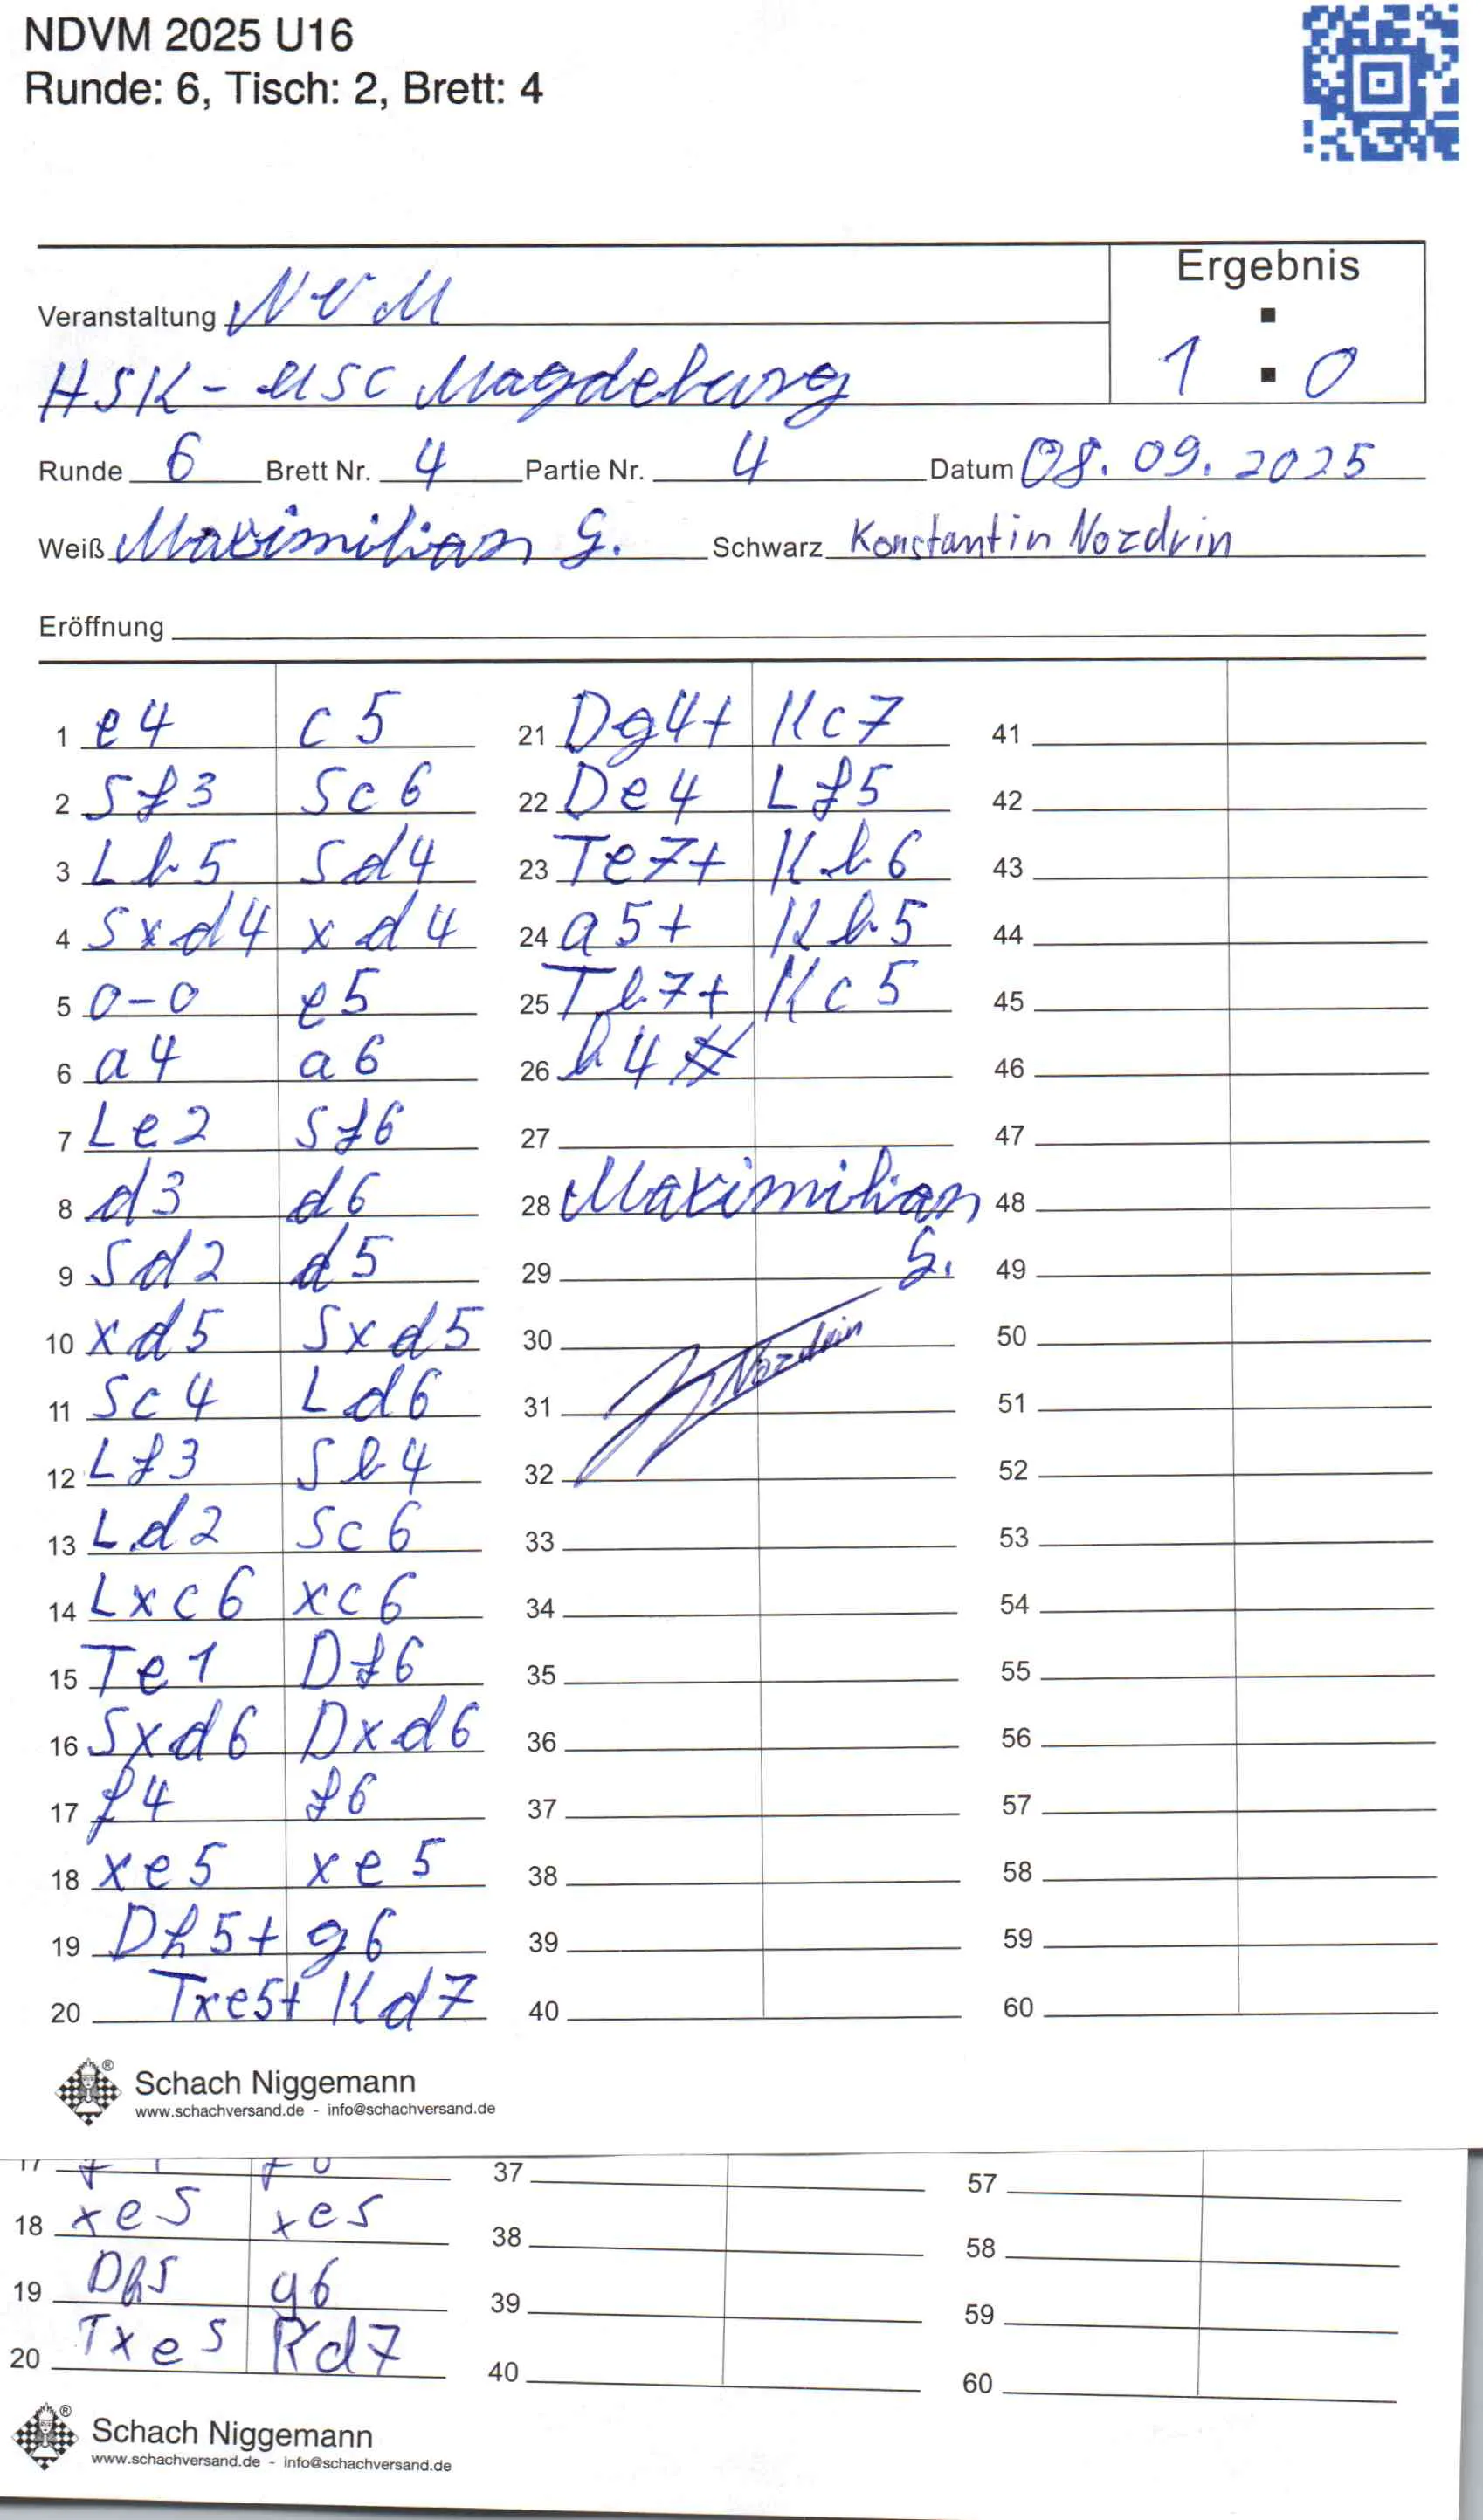 NDVM 2025 U16
Runde: 6, Tisch: 2, Brett: 4
Ergebnis
Veranstaltung NVM
HSK - USC Magdeburg
1 : 0
Runde 6 Brett Nr. 4 Partie Nr. 4 Datum 08.09.2025
Weiß Maximilian G. Schwarz Konstantin Nozdrin
Eröffnung
1 e4 c5
2 Sf3 Sc6
3 Lb5 Sd4
4 Sxd4 xd4
5 0-0 e5
6 a4 a6
7 Le2 Sf6
8 d3 d6
9 Sd2 d5
10 xd5 Sxd5
11 Sc4 Ld6
12 Lf3 Sb4
13 Ld2 Sc6
14 Lxc6 xc6
15 Te1 Df6
16 Sxd6 Dxd6
17 f4 f6
18 xe5 xe5
19 Dh5+ g6
20 Txe5+ Kd7
21 Dg4+ Kc7
22 De4 Lf5
23 Te7+ Kb6
24 a5+ Kb5
25 Tb7+ Kc5
26 b4#
27
28 Maximilian
29 G.
30 Nozdrin
31
32
33
34
35
36
37
38
39
40
41
42
43
44
45
46
47
48
49
50
51
52
53
54
55
56
57
58
59
60
Schach Niggemann
www.schachversand.de - info@schachversand.de
17 37 57
18 xe5 xe5 38 58
19 Dh5 g6 39 59
20 Txe5 Kd7 40 60
Schach Niggemann
www.schachversand.de - info@schachversand.de